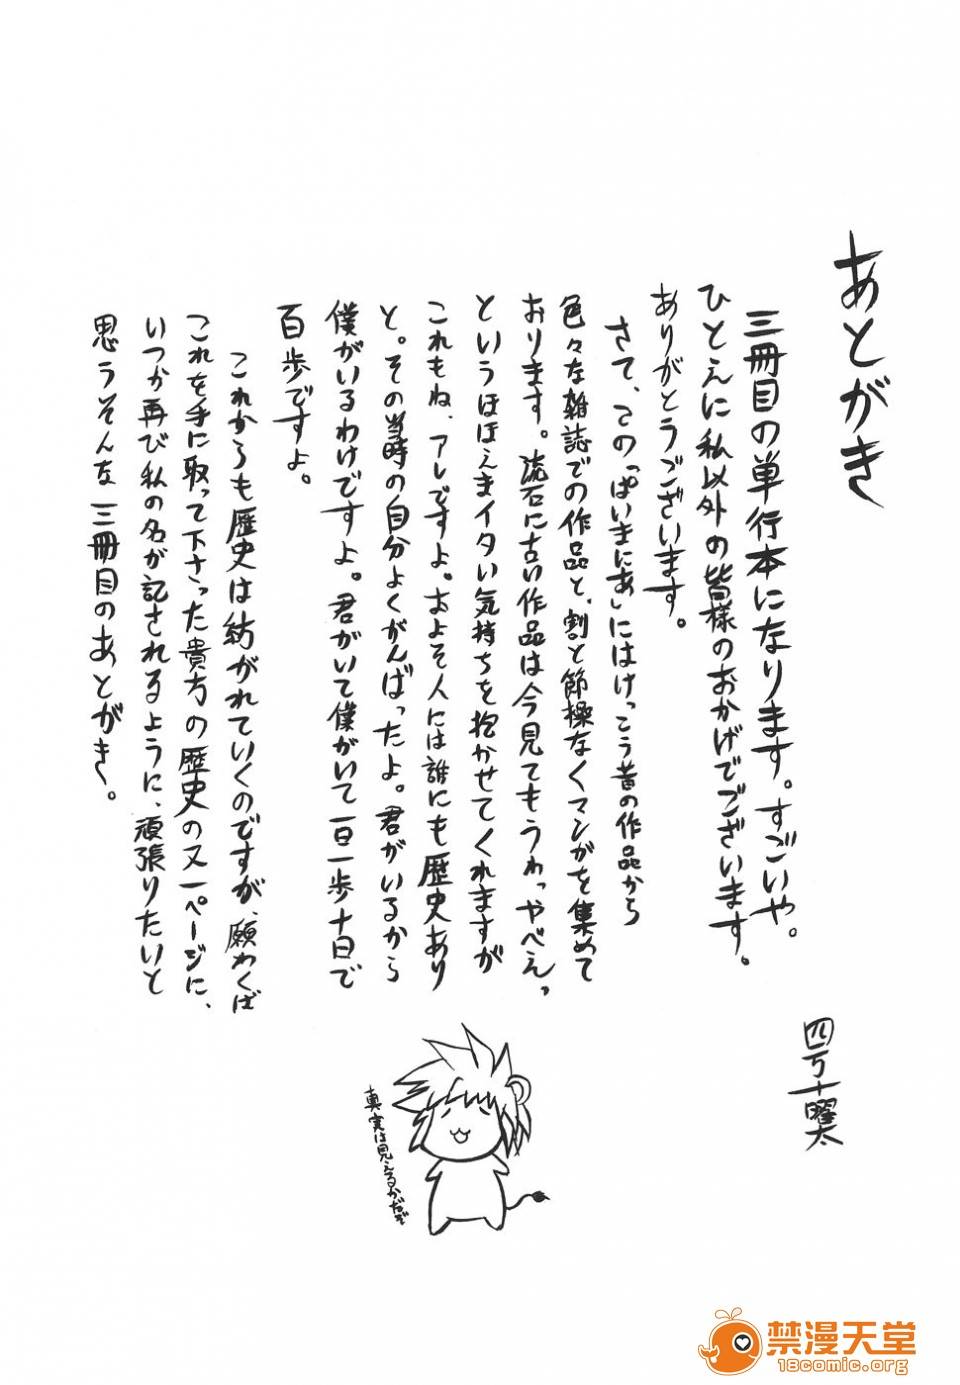 あとがき
三冊目の単行本になります。すごいや。
ひとえに私以外の皆様のおかげでございます。
ありがとうございます。
さて、この「ぱいまにあ」にはけっこう昔の作品から
色々な雑誌での作品と、割と節操なくマンガを集めて
おります。流石に古い作品は今見てもうわっやべえっ
というほほえまイタい気持ちを抱かせてくれますが
これもね、アレですよ。およそ人には誰にも歴史あり
と。その当時の自分よくがんばったよ。君がいるから
僕がいるわけですよ。君がいて僕がいて一日一歩十日で
百歩ですよ。
これからも歴史は紡がれていくのですが、願わくば
これを手に取って下さった貴方の歴史の又一ページに、
いつか再び私の名が記されるように、頑張りたいと
思うそんな三冊目のあとがき。
四万十曜太
真実は見えるかだぞ
禁漫天堂
18comic.org